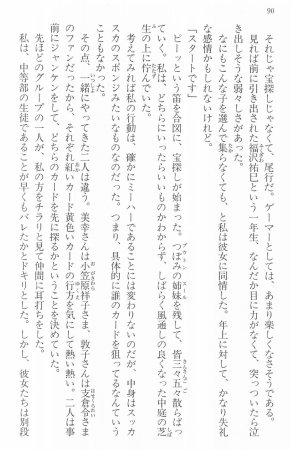 90
それじゃ宝探しじゃなくて、尾行だ。ゲーマーとしては、あまり楽しくなさそうである。
見れば前に引き出された福沢祐巳という一年生、なんだか目に力がなくて、突っついたら泣
き出しそうな弱々しさがあった。
なにもこんな子を選んで集らなくても、と私は彼女に同情した。年上に対して、かなり失礼
な感情かもしれないけれど。
「スタートです」
ピーッという笛を合図に、宝探しが始まった。つぼみの姉妹を残して、皆三々五々散らばっ
ていく。私は、どちらにいったらいいものかわからず、しばらく風通しの良くなった中庭の芝
生の上に佇んでいた。
考えてみれば私の行動は、確かにミーハーであることには変わりないのだが、中身はスッカ
スカのスポンジみたいなものなのだった。つまり、具体的に誰のカードを狙ってるなんてい
うこともなかった。
その点、一緒にやってきた二人は違う。美幸さんは小笠原祥子さま、敦子さんは支倉令さま
のファンだったから、それぞれ紅いカード黄色いカードの行方を気にして熱い熱い。二人は事
前にジャンケンをして、どちらのカードを先に探るかということを決めていた。
先ほどのグループの一人が、私の方をチラリと見て仲間に耳打ちをした。
私は、中等部の生徒であることが早くもバレたかとドキリとした。しかし、彼女たちは別段